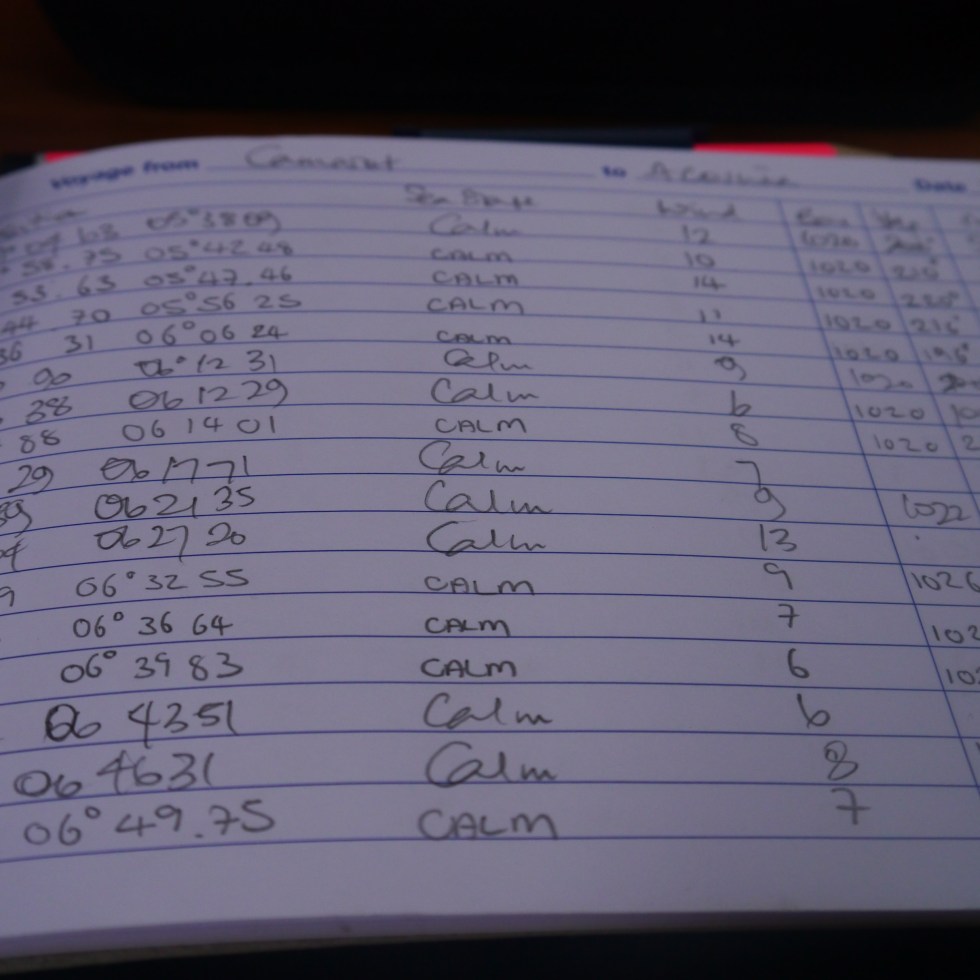 Voyage from Camaret to Date
Sea State Wind
05°38 09 Calm 12 1020
58.75 05°42.48 CALM 10 1020 210°
53.63 05°47.46 CALM 14 1020 220°
44.70 05°56 25 CALM 11 1020 216°
36 31 06°06 24 CALM 14 1020 196°
90 06°12 31 Calm 9 1020
38 06 12 29 Calm 6 1020
88 06 14 01 CALM 8 1020 2
29 06 17 71 Calm 7
06 21 35 Calm 9 1022
06 27 20 Calm 13
9 06°32 55 CALM 9 1026
06° 36 64 CALM 7 102
06° 39 83 CALM 6 102
06 4351 Calm 6
06 4631 Calm 8
06° 49.75 CALM 7